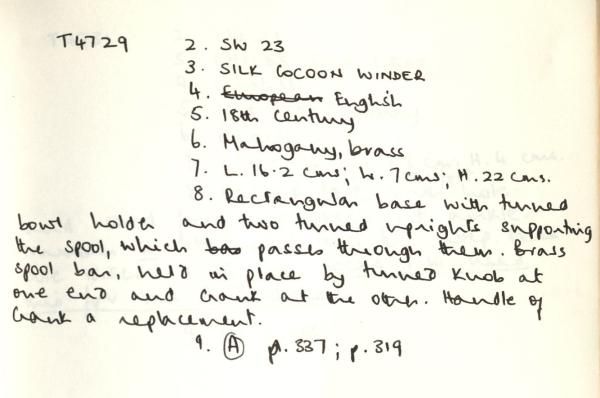 T4729 2. SW 23
3. SILK COCOON WINDER
4. European English
5. 18th Century
6. Mahogany, brass
7. L. 16.2 cms; W. 7 cms; H. 22 cms.
8. Rectangular base with turned
bowl holder and two turned uprights supporting
the spool, which bas passes through them. Brass
spool bar, held in place by turned knob at
one end and crank at the other. Handle of
crank a replacement.
9. (A) p. 337; p. 319